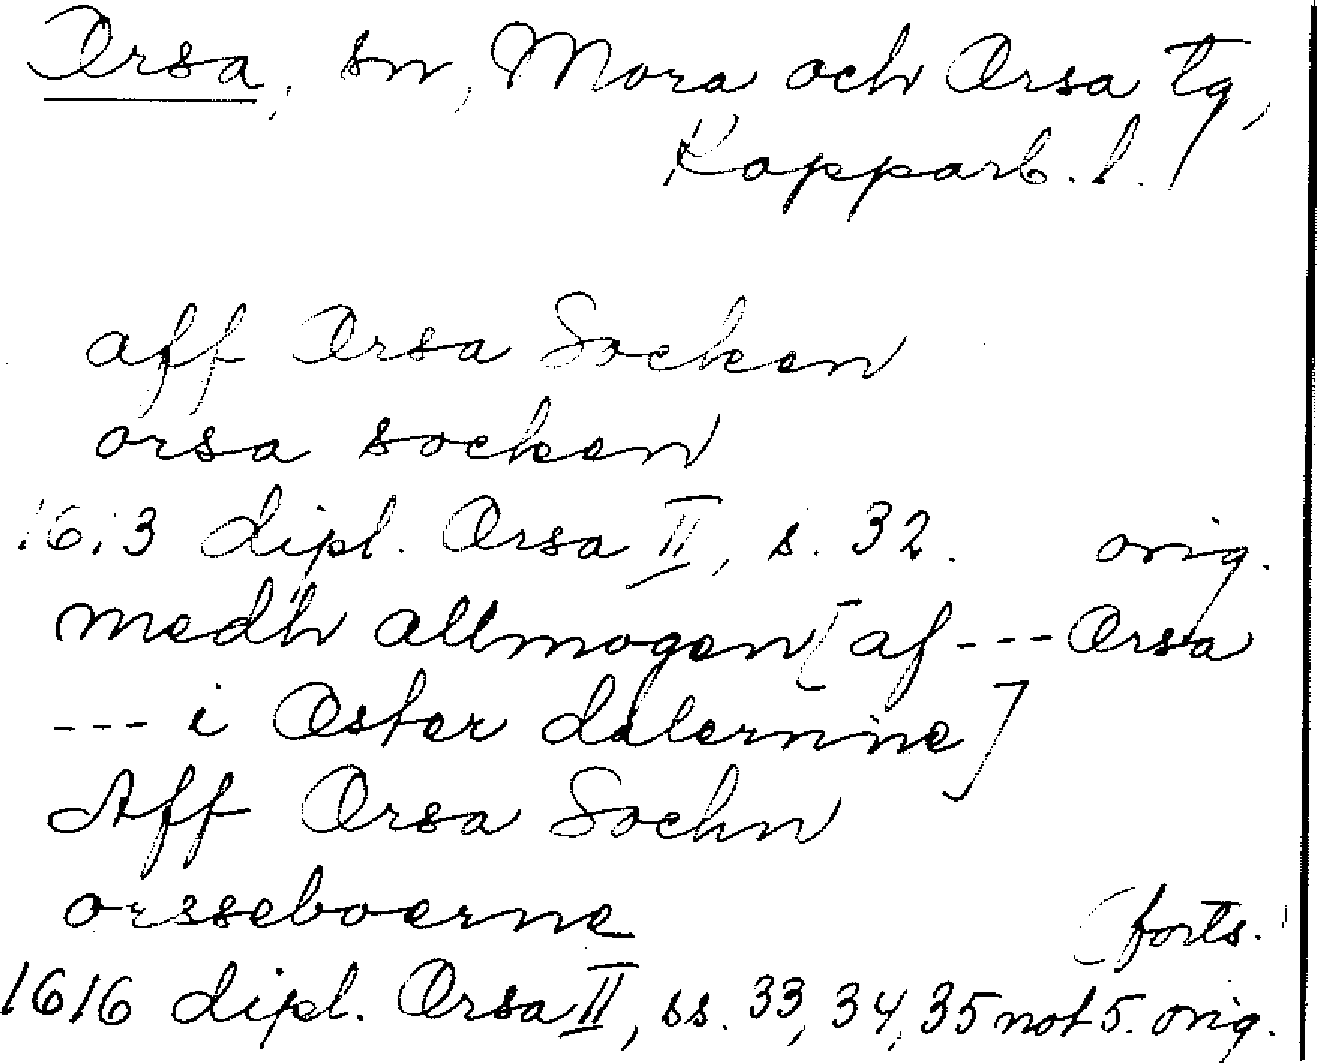 Orsa, sn, Mora och Orsa tg,
Kopparb. l.
aff Orsa Socken
orsa socken
1613 dipl. Orsa II, s. 32. orig.
medh allmogen [af --- Orsa
--- i Öster dalernine]
Aff Orsa Sochn
orsseboerne
(forts.)
1616 dipl. Orsa II, ss. 33, 34, 35 not 5. orig.